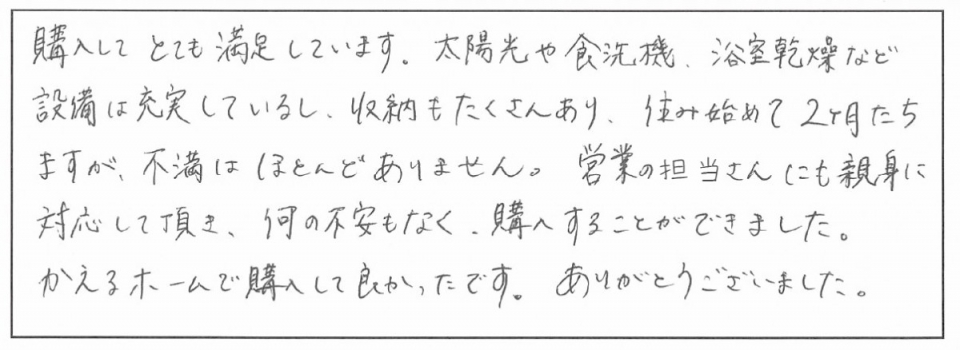 購入してとても満足しています。太陽光や食洗機、浴室乾燥など
設備は充実しているし、収納もたくさんあり、住み始めて2ヶ月たち
ますが、不満はほとんどありません。営業の担当さんにも親身に
対応して頂き、何の不安もなく、購入することができました。
かえるホームで購入して良かったです。ありがとうございました。